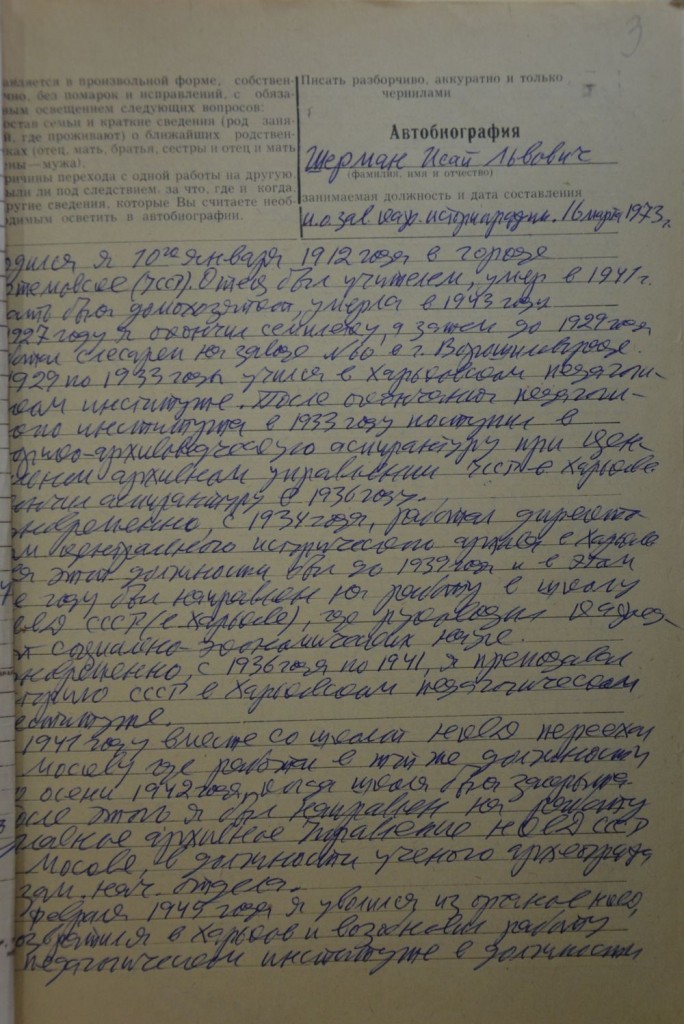 3
вляется в произвольной форме, собствен-
чно, без помарок и исправлений, с обяза-
ным освещением следующих вопросов:
остав семьи и краткие сведения (род заня-
й, где проживают) о ближайших родствен-
ках (отец, мать, братья, сестры и отец и мать
ены—мужа).
ричины перехода с одной работы на другую.
ыли ли под следствием, за что, где и когда.
ругие сведения, которые Вы считаете необ-
димым осветить в автобиографии.
Писать разборчиво, аккуратно и только
чернилами
Автобиография
Шерман Исай Львович
(фамилия, имя и отчество)
занимаемая должность и дата составления
и.о зав каф. историографии. 16 марта 1973 г.
одился я 10го января 1912 года в городе
темовске (УССР). Отец был учителем, умер в 1941 г.
ать была домохозяйкой, умерла в 1943 году
927 году я окончил семилетку, а затем до 1929 года
ботал слесарем на заводе №60 в г. Ворошиловграде.
1929 по 1933 годы учился в Харьковском педагоги-
ком институте. После окончания педагоги-
ого института в 1933 году поступил в
архивоведческую аспирантуру при Цен-
льном архивном управлении УССР в Харькове
ончил аспирантуру в 1936 году.
новременно, с 1934 года, работал директо-
ом центрального исторического архива в Харькове
этой должности был до 1939 года и в этом
е году был направлен на работу в школу
НКВД СССР (в Харькове), где руководил кафед-
социально-экономических наук.
новременно, с 1936 года по 1941, я преподавал
торию СССР в Харьковском педагогическом
нституте.
1941 году вместе со школой НКВД переехал
Москву где работал в той же должности
осени 1942 года, когда школа была закрыта.
осле этого я был направлен на работу
лавное архивное Управление НКВД СССР
Москве, в должности ученого археографа
зам. нач. отдела.
феврале 1945 года я уволился из органов НКВД,
озвратился в Харьков и возобновил работу
педагогическом институте в должности